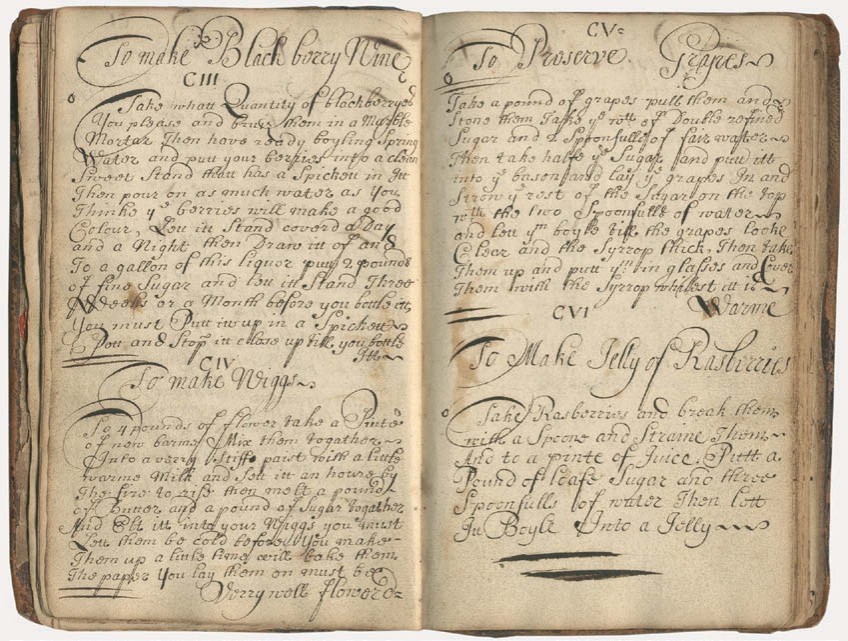 To make Black berry Wine
CIII
Take whatt Quantity of blackberryes
You please and bruse them in a Marble
Mortar Then have ready boyling Spring
Water and putt your berries into a clean
Sweet Stand thatt has a Spickett in Itt
Then pour on as much water as You
Thinke ye berries will make a good
Colour, Lett itt Stand coverd a Day
and a Night then Draw itt of and
To a gallon of this liquor putt 2 pounds
of fine Sugar and lett itt Stand Three
Weeks or a Month before you bottle itt
You must Putt itt up in a Spickett
Pott and Stop itt close up till you bottle
Itt
CIV
To make Wiggs
To 4 pounds of flower take a Pinte
of new barme Mix them togather
Into a verry Stiffe paist with a little
warme Milk and Sett itt an houre by
The fire to rise then melt a pound
of Butter and a pound of Sugar togather
And itt into your Wiggs you must
Lett them be cold before You make
Them up a little time will bake them
The paper You lay them on must be
Verry well flowered
CV
To Preserve Grapes
Take a pound of grapes pull them and
Stone them Take ye of Double refined
Sugar and 2 Spoonfulls of fair water
Then take halfe ye Sugar and putt itt
into ye bason and lay ye grapes In and
Strow ye rest of the Sugar on the top
with the two Spoonfulls of water
and lett ym boyle till the grapes looke
Clear and the Syrrop thick, Then take
Them up and putt ym in glasses and Cover
Them with the Syrrop whilest itt is
Warme
CVI
To Make Jelly of Rasberries
Take Rasberries and break them
with a Spoone and Straine Them
And to a pinte of Juice Putt a
Pound of loafe Sugar and three
Spoonfulls of water Then lett
It Boyle Into a Jelly